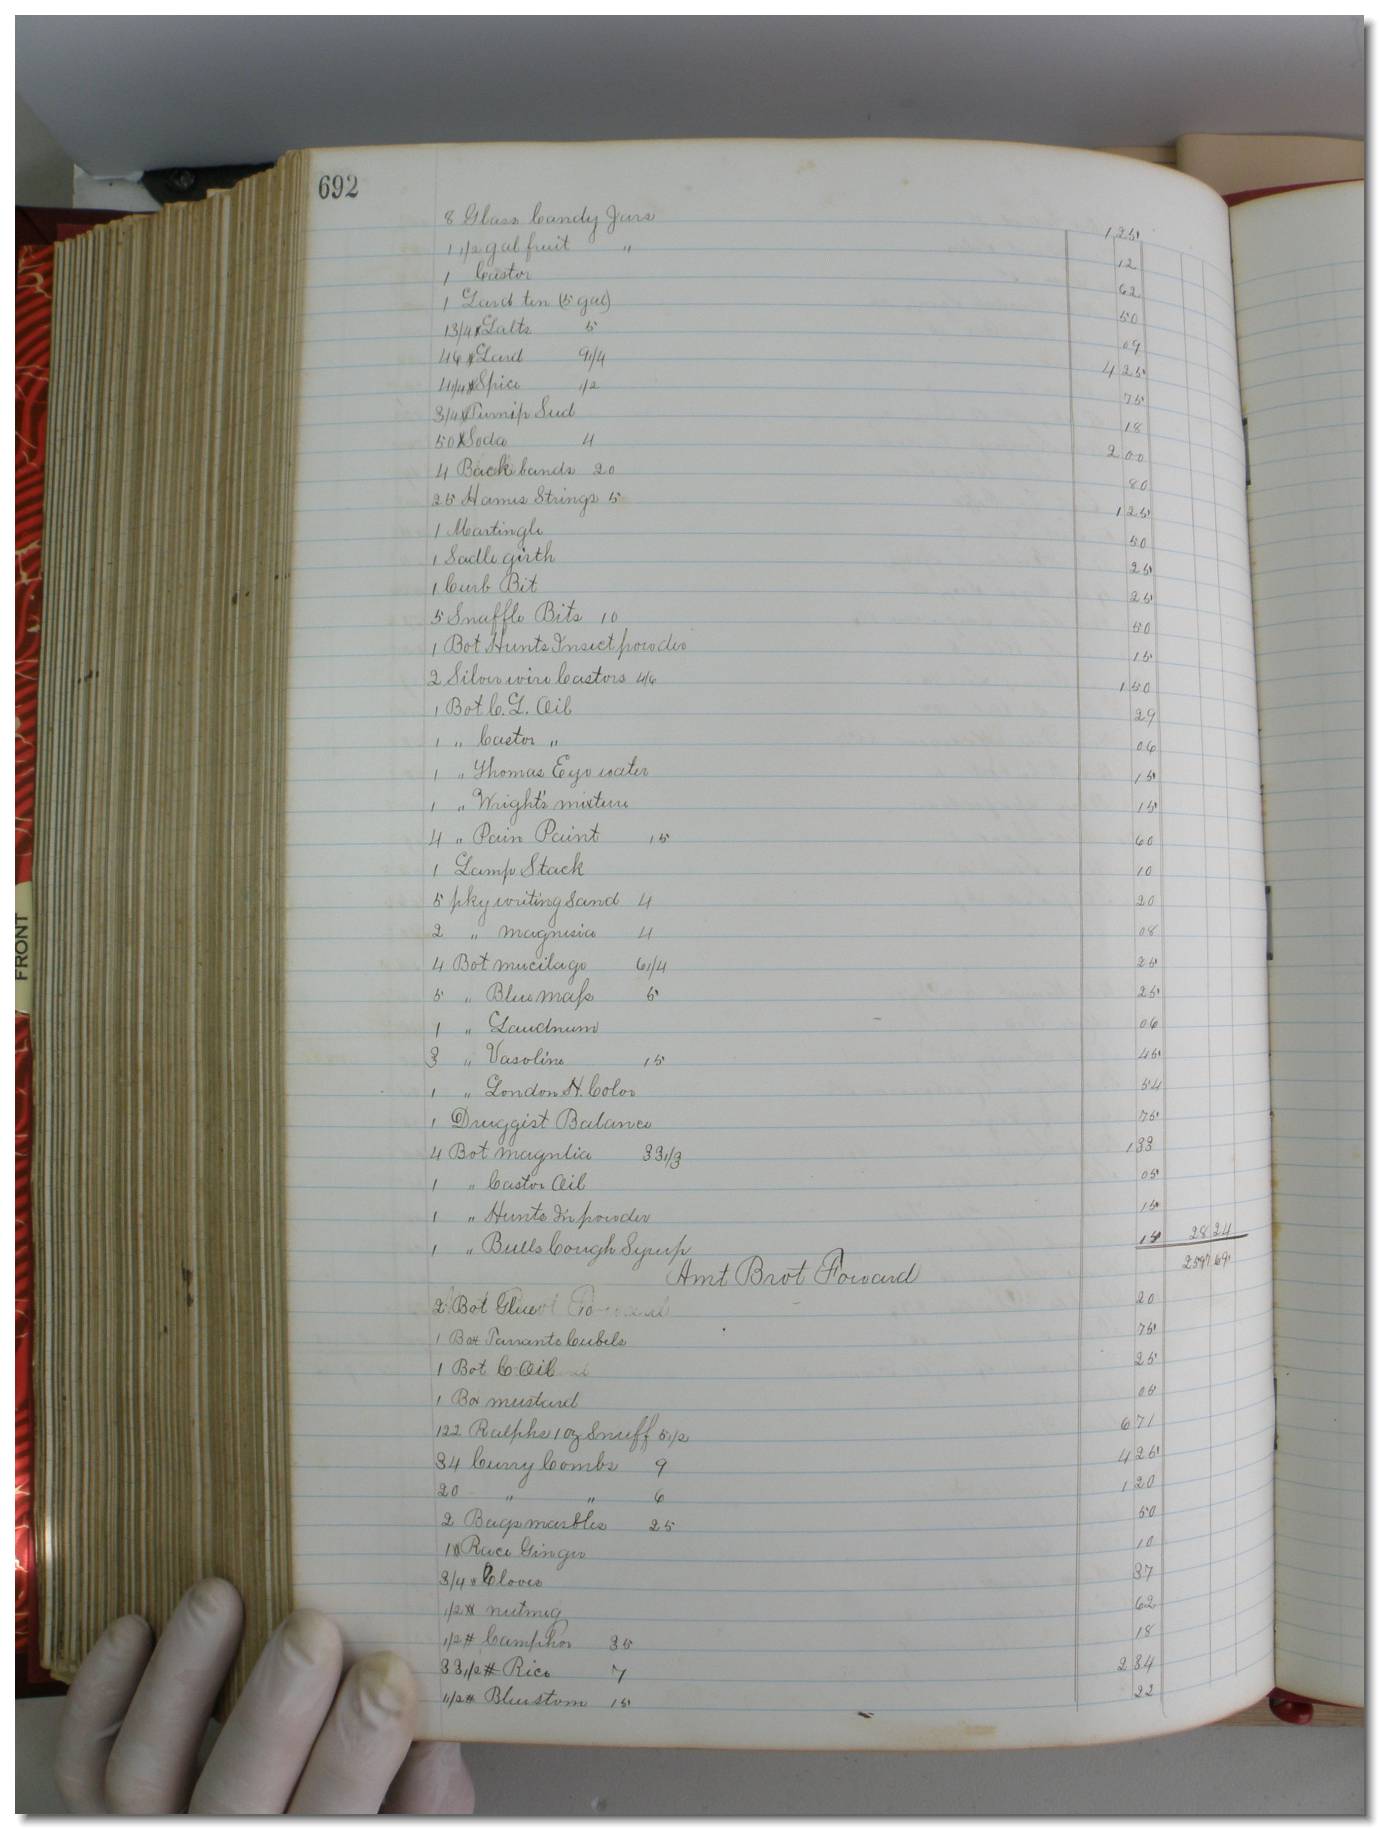 692
8 Glass Candy Jars 1 25
1 1/2 gal fruit " 12
1 Castor 62
1 Lard ten (5 gal) 50
1 3/4 # Salts 5 09
46 # Lard 9 1/4 4 25
4 1/4 # Spice 1/2 75
3/4 # Turnip Sud 18
50 # Soda 4 2 00
4 Back bands 20 80
25 Hames Strings 5 1 25
1 Martingle 50
1 Sadle girth 25
1 Curb Bit 25
5 Snaffle Bits 10 50
1 Bot Hunts Insect powder 15
2 Silver wire Castors 1 50
1 Bot C. L. Oil 29
1 " Castor " 06
1 " Thomas Eye water 15
1 " Wright's mixture 15
4 " Pain Paint 15 60
1 Lamp Stack 10
5 pkg writing Sand 4 20
2 " magnisia 4 08
4 Bot mucilage 6 1/4 25
5 " Blue mass 5 25
1 " Laudnum 06
3 " Vasoline 15 45
1 " London H. Color 54
1 Druggist Balance 75
4 Bot magnlia 33 1/3 1 33
1 " Castor Oil 05
1 " Hunts In powder 15
1 " Bulls Cough Syrup 15 28 24
Amt Brot Foward 2597 69
2 Bot Glue 20
1 Box Tarrants Cubebs 75
1 Bot C Oil 25
1 Box mustard 05
122 Ralphs 1 oz Snuff 5 1/2 6 71
34 Curry Combs 9 4 25
20 " " 6 1 20
2 Bags marbles 25 50
1 # Race Ginger 10
3/4 " Cloves 37
1/2 # nutmeg 62
1/2 # Camphor 35 18
33 1/2 # Rice 7 2 34
1 1/2 # Bluestom 15 22
FRONT